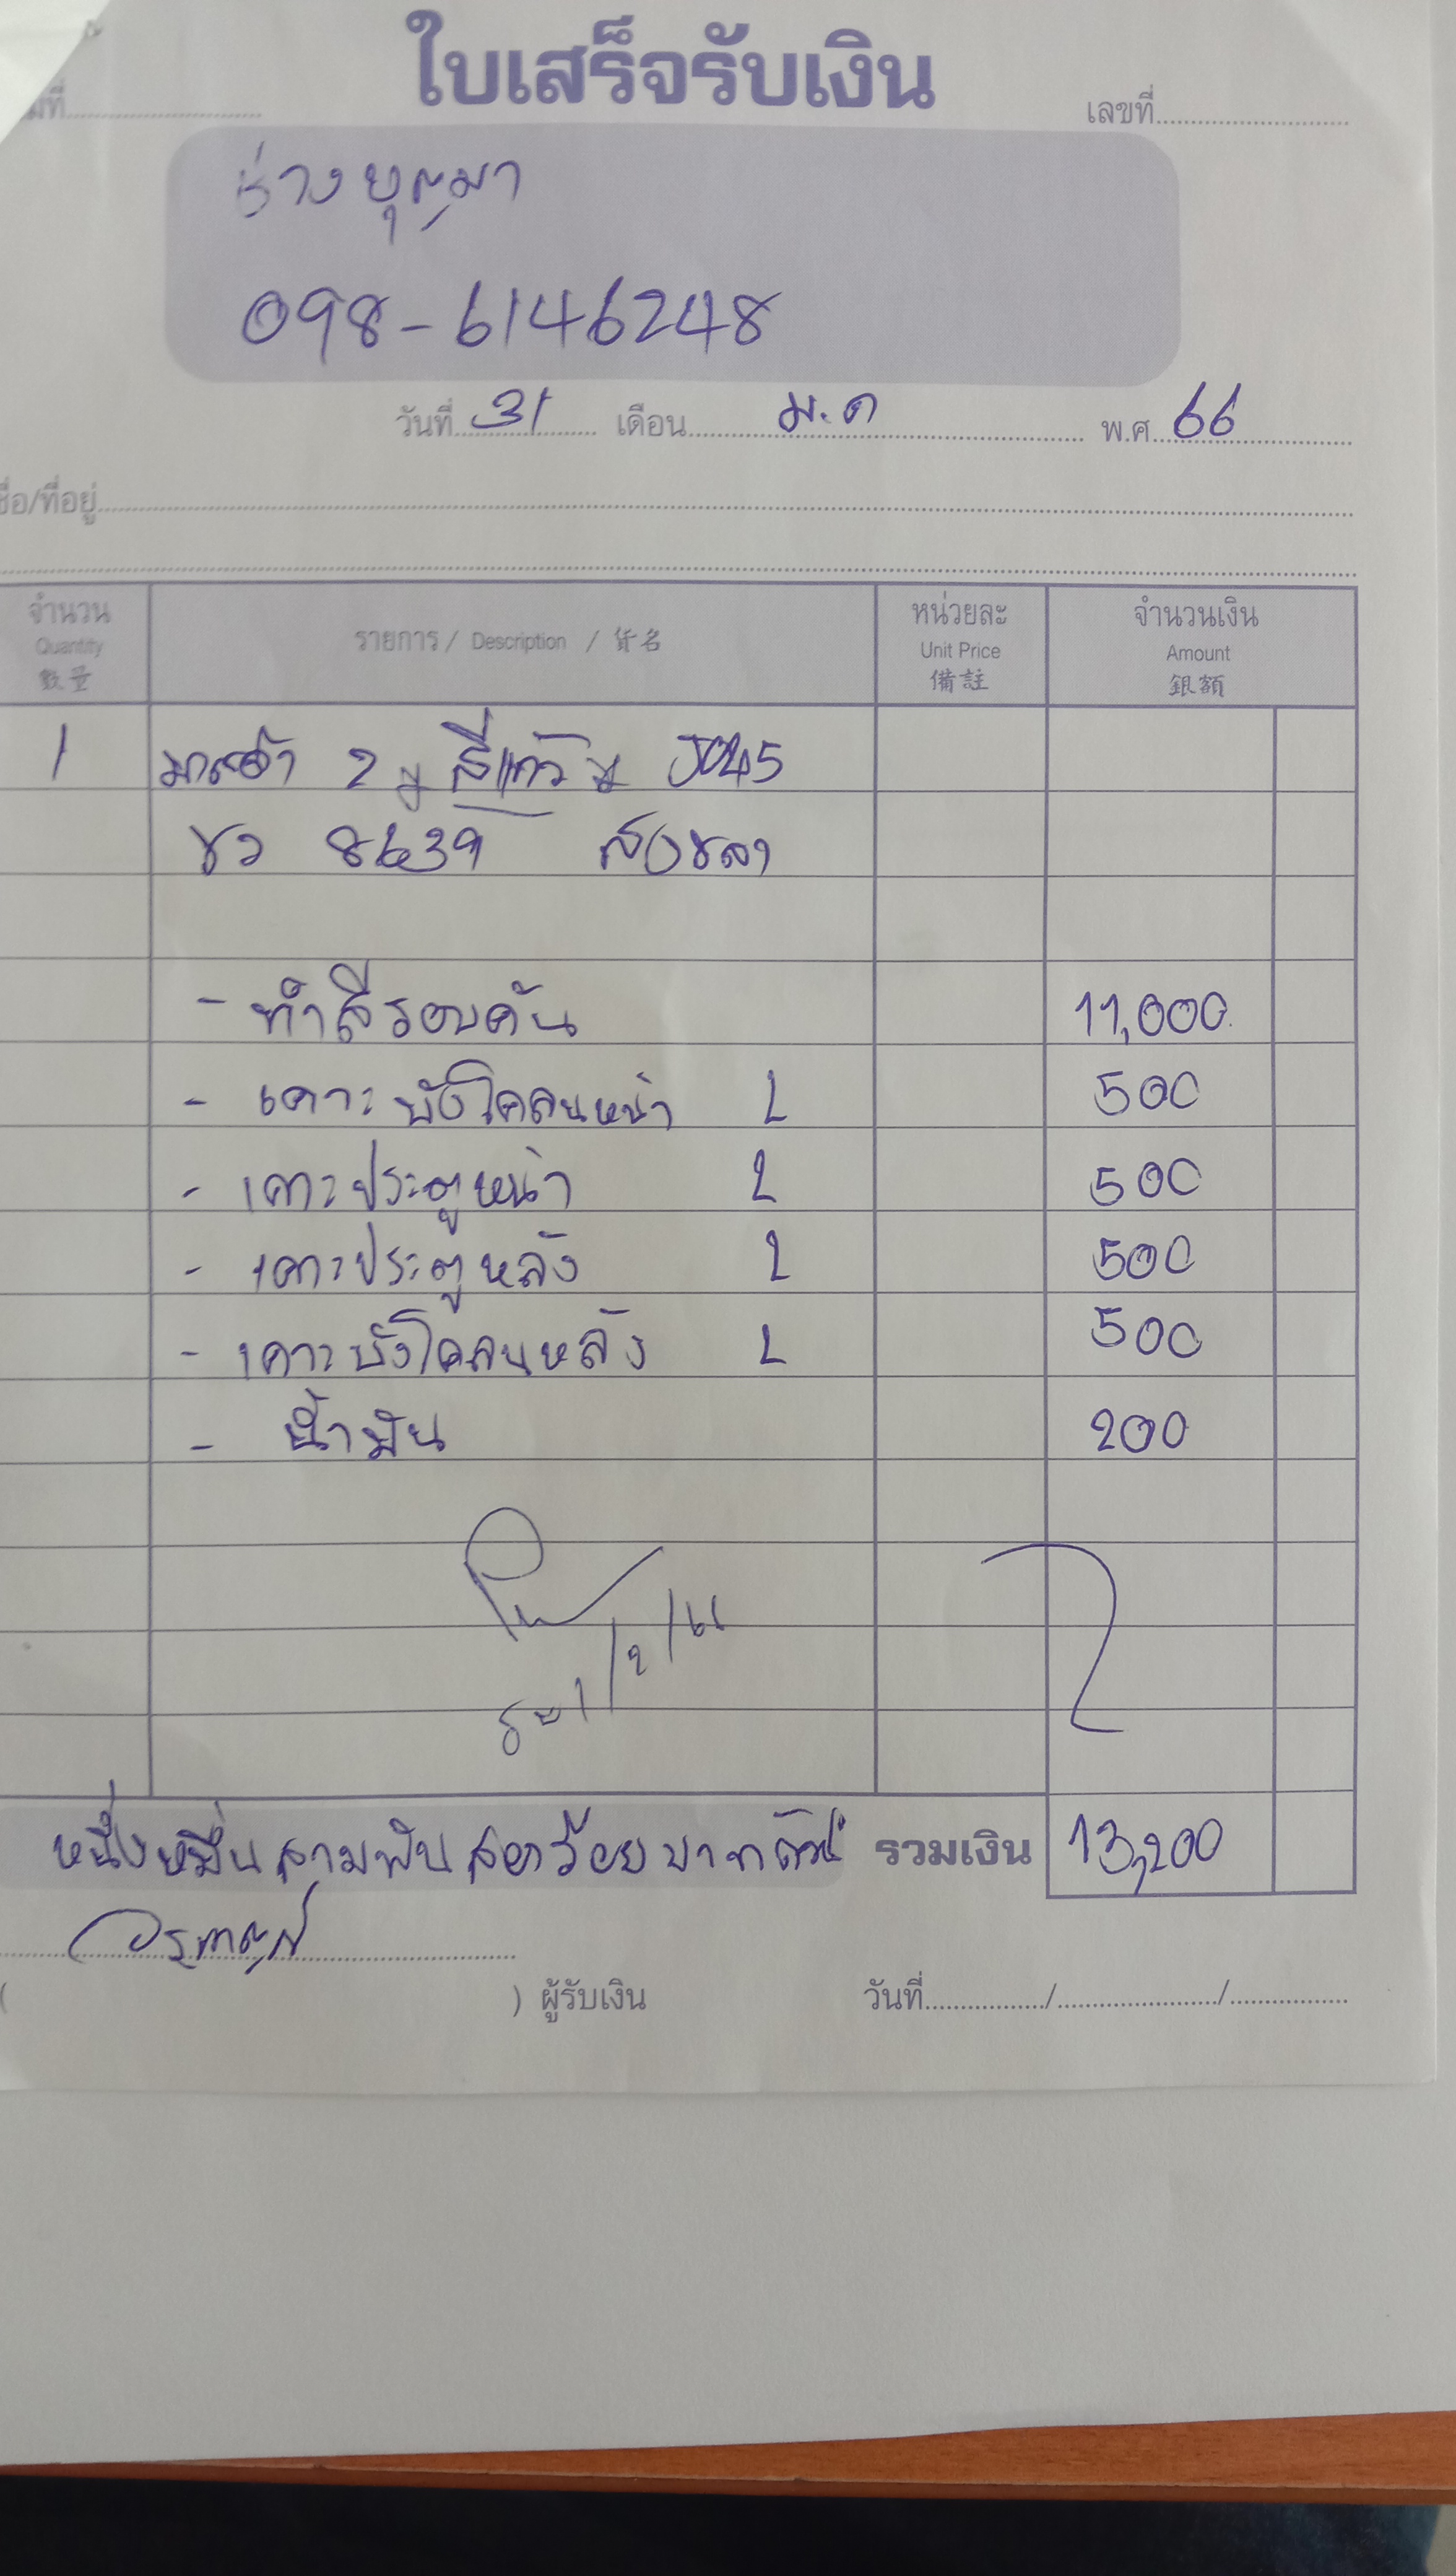 ใบเสร็จรับเงิน
มที่ เลขที่
ช่างบุญมา
098-6146248
วันที่ 31 เดือน ม.ค พ.ศ. 66
ชื่อ/ที่อยู่
จำนวน รายการ / Description / 貨名 หน่วยละ จำนวนเงิน
Quantity Unit Price Amount
數量 備註 銀額
1 มาสด้า 2 J045
ขว 8639 สงขลา
- ทำสีรอบคัน 11,000
- เคาะบังโคลนหน้า L 500
- เคาะประตูหน้า L 500
- เคาะประตูหลัง L 500
- เคาะบังโคลนหลัง L 500
- น้ำมัน 200
1/2/66
หนึ่งหมื่นสามพันสองร้อยบาทถ้วน รวมเงิน 13,200
( ) ผู้รับเงิน วันที่ / /